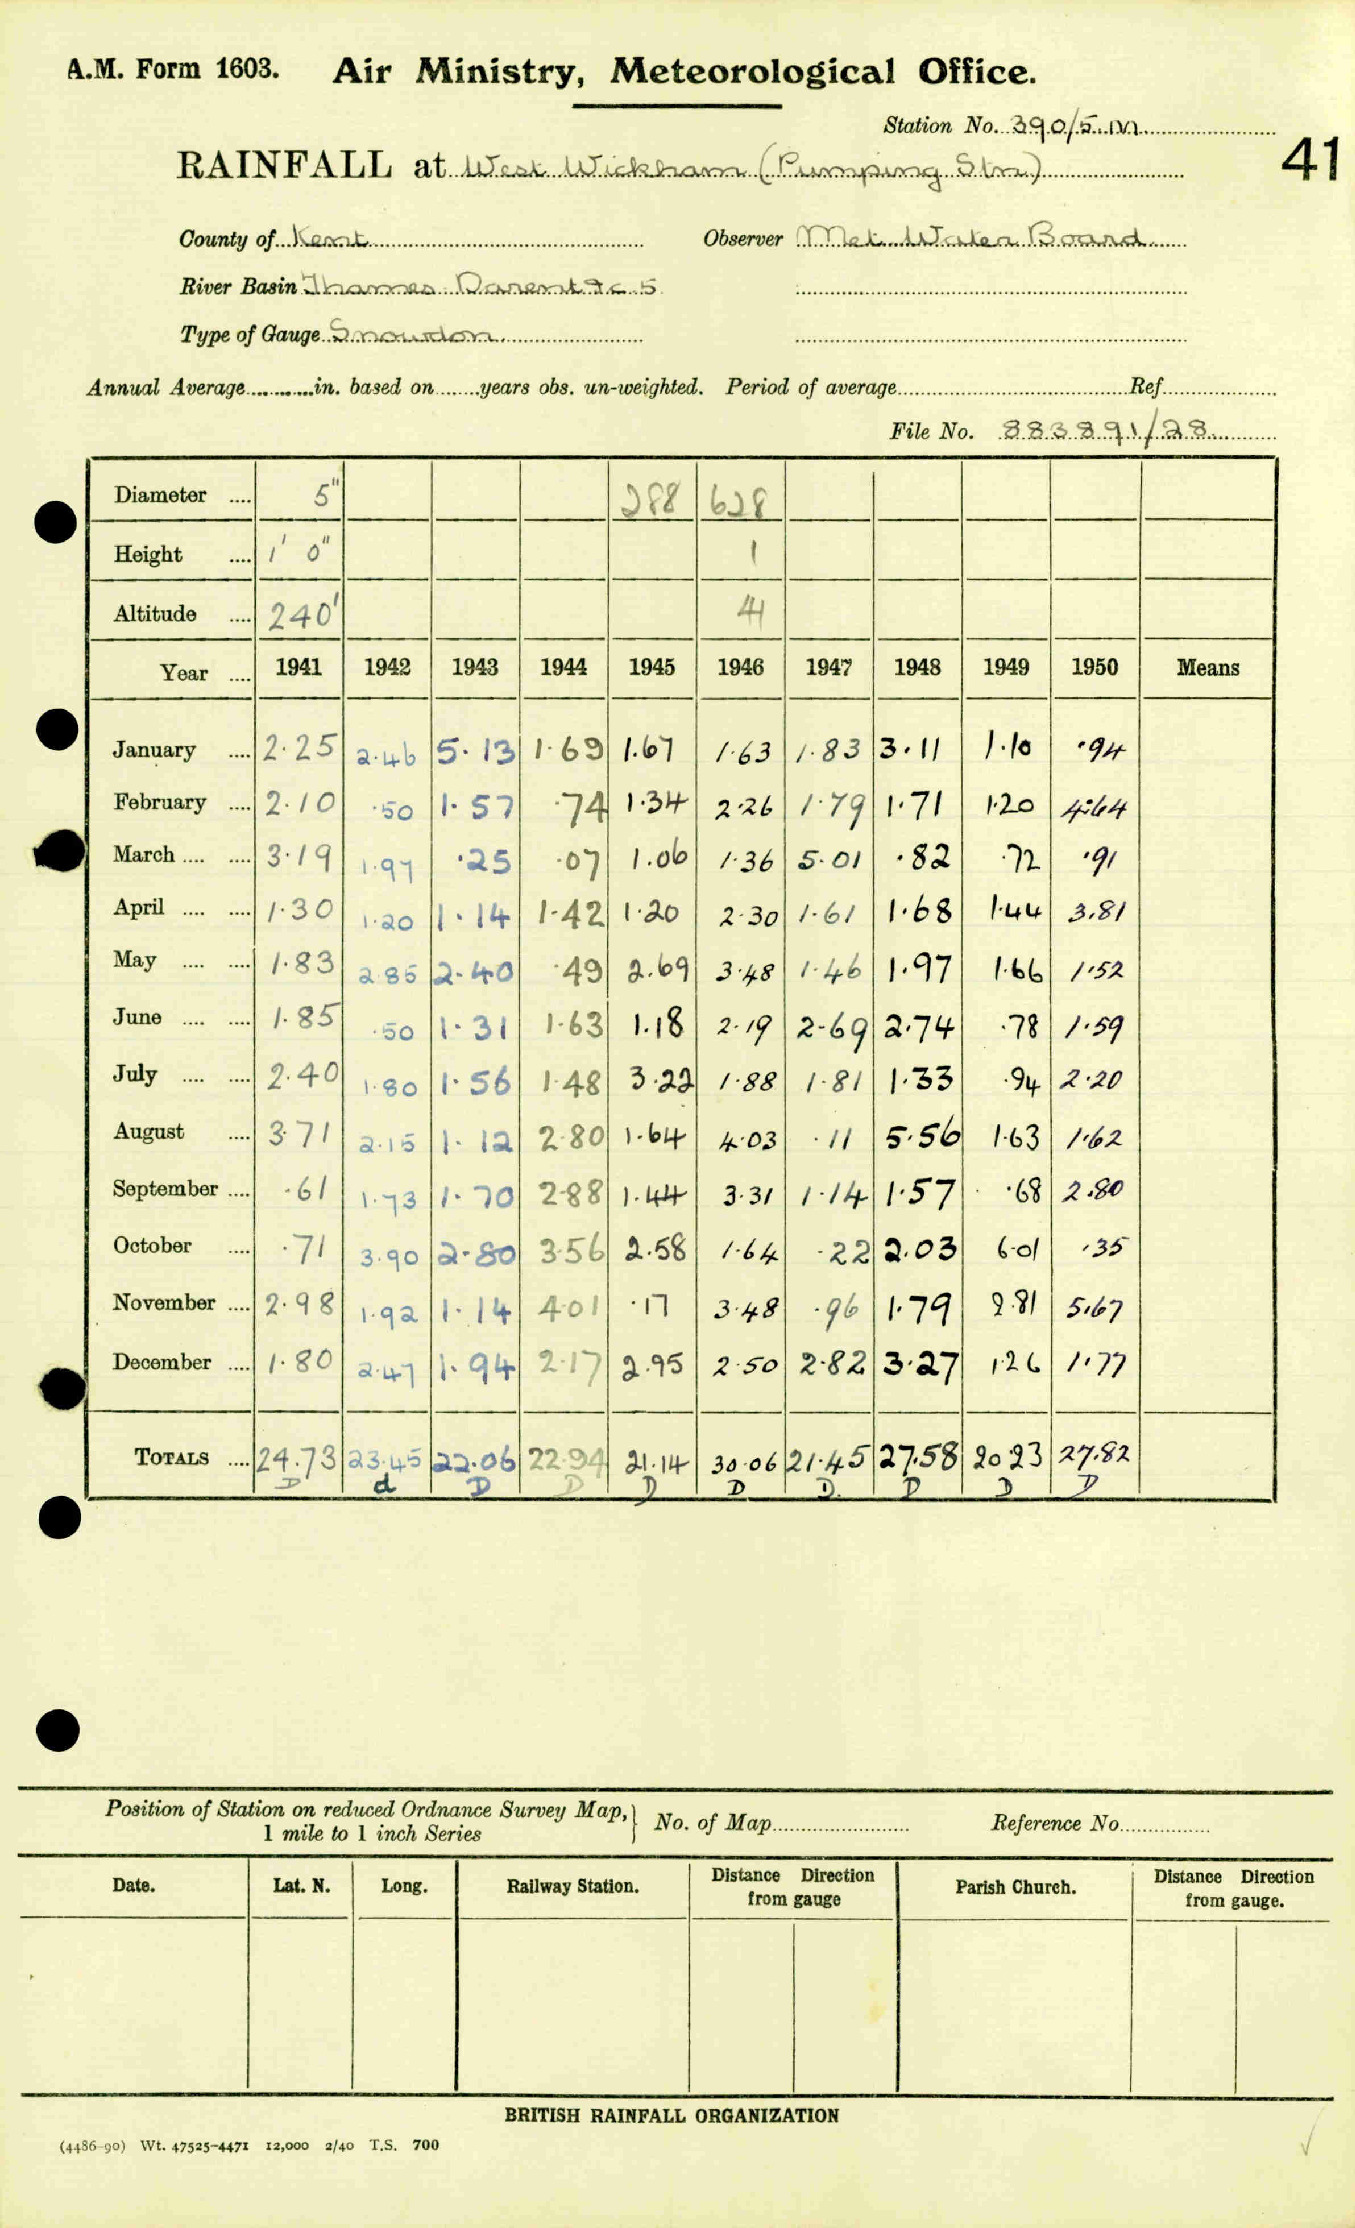 A.M. Form 1603. Air Ministry, Meteorological Office.
Station No. 390/5.M
41
RAINFALL at West Wickham (Pumping Stn)
County of Kent Observer Met Water Board
River Basin Thames Darent &c 5
Type of Gauge Snowdon
Annual Average............in. based on........years obs. un-weighted. Period of average........Ref........
File No. 883891/28
Diameter .... 5" 288 628
Height .... 1' 0" 1
Altitude .... 240' 41
Year .... 1941 1942 1943 1944 1945 1946 1947 1948 1949 1950 Means
January .... 2.25 2.46 5.13 1.69 1.67 1.63 1.83 3.11 1.10 .94
February .... 2.10 .50 1.57 .74 1.34 2.26 1.79 1.71 1.20 4.64
March .... .... 3.19 1.97 .25 .07 1.06 1.36 5.01 .82 .72 .91
April .... .... 1.30 1.20 1.14 1.42 1.20 2.30 1.61 1.68 1.44 3.81
May .... .... 1.83 2.85 2.40 .49 2.69 3.48 1.46 1.97 1.66 1.52
June .... .... 1.85 .50 1.31 1.63 1.18 2.19 2.69 2.74 .78 1.59
July .... .... 2.40 1.80 1.56 1.48 3.22 1.88 1.81 1.33 .94 2.20
August .... 3.71 2.15 1.12 2.80 1.64 4.03 .11 5.56 1.63 1.62
September .... .61 1.73 1.70 2.88 1.44 3.31 1.14 1.57 .68 2.80
October .... .71 3.90 2.80 3.56 2.58 1.64 .22 2.03 6.01 .35
November .... 2.98 1.92 1.14 4.01 .17 3.48 .96 1.79 2.81 5.67
December .... 1.80 2.47 1.94 2.17 2.95 2.50 2.82 3.27 1.26 1.77
TOTALS .... 24.73 23.45 22.06 22.94 21.14 30.06 21.45 27.58 20.23 27.82
D d D D D D D. D D D
Position of Station on reduced Ordnance Survey Map, 1 mile to 1 inch Series } No. of Map........ Reference No........
Date. Lat. N. Long. Railway Station. Distance Direction from gauge Parish Church. Distance Direction from gauge.
BRITISH RAINFALL ORGANIZATION
(4486-90) Wt. 47525-4471 12,000 2/40 T.S. 700